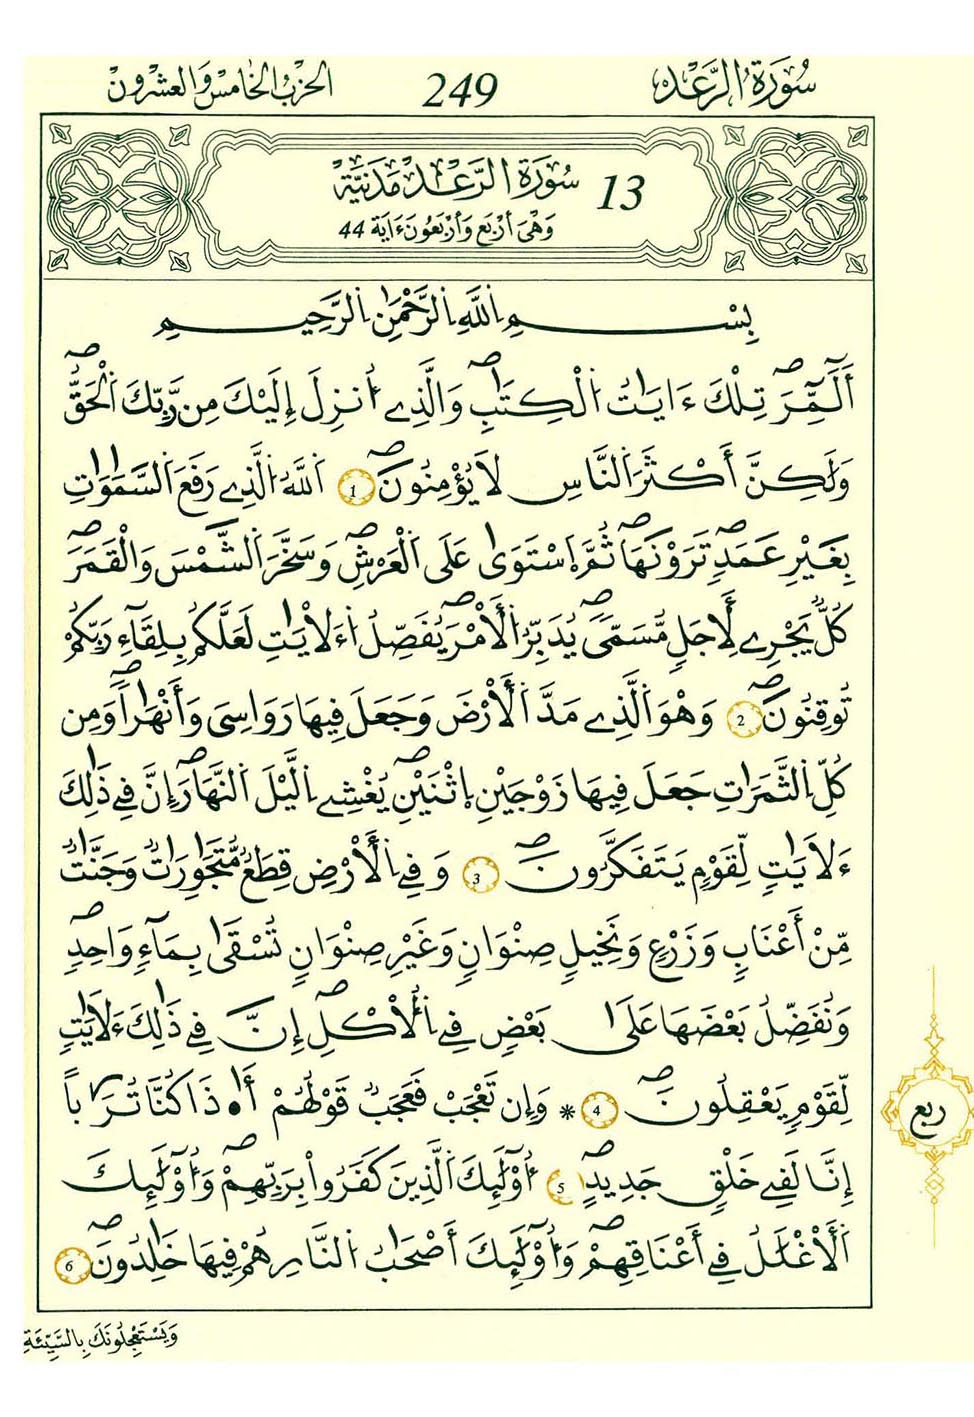 سُورَةُ الرَّعْدِ
249
الحِزْبُ الخَامِسُ وَالعِشْرُونَ
13 سُورَةُ الرَّعْدِ مَدَنِيَّةٌ
وَهْيَ أَرْبَعٌ وَأَرْبَعُونَ ءَايَةً 44
بِسْمِ اِللَّهِ اِلرَّحْمَٰنِ اِلرَّحِيمِ
أَلَٓمِّٓرَۖ تِلْكَ ءَايَٰتُ اُلْكِتَٰبِۖ وَالَّذِےٓ أُنزِلَ إِلَيْكَ مِن رَّبِّكَ اَلْحَقُّۖ
وَلَٰكِنَّ أَكْثَرَ اَلنَّاسِ لَا يُؤْمِنُونَۖ 1 اَللَّهُ اُلَّذِے رَفَعَ اَلسَّمَٰوَٰتِ
بِغَيْرِ عَمَدٖ تَرَوْنَهَاۖ ثُمَّ اَسْتَوَىٰ عَلَى اَلْعَرْشِۖ وَسَخَّرَ اَلشَّمْسَ وَالْقَمَرَۖ
كُلّٞ يَجْرِے لِأَجَلٖ مُّسَمّىٗۖ يُدَبِّرُ اُلْأَمْرَۖ يُفَصِّلُ اُءَلْأيَٰتِ لَعَلَّكُم بِلِقَآءِ رَبِّكُمْ
تُوقِنُونَۖ 2 وَهُوَ اَلَّذِے مَدَّ اَلْأَرْضَ وَجَعَلَ فِيهَا رَوَٰسِيَ وَأَنْهَٰراٗۖ وَمِن
كُلِّ اِلثَّمَرَٰتِ جَعَلَ فِيهَا زَوْجَيْنِ اِثْنَيْنِۖ يُغْشِے اِلَّيْلَ اَلنَّهَارَۖ إِنَّ فِے ذَٰلِكَ
ءَلَايَٰتٖ لِّقَوْمٖ يَتَفَكَّرُونَۖ 3 وَفِے اِلْأَرْضِ قِطَعٞ مُّتَجَٰوِرَٰتٞ وَجَنَّٰتٞ
مِّنْ أَعْنَٰبٖ وَزَرْعٖ وَنَخِيلٖ صِنْوَانٖ وَغَيْرِ صِنْوَانٖ تُسْقَىٰ بِمَآءٖ وَٰحِدٖۖ
وَنُفَضِّلُ بَعْضَهَا عَلَىٰ بَعْضٖ فِے اِلْأُكْلِۖ إِنَّ فِے ذَٰلِكَ ءَلَايَٰتٖ
لِّقَوْمٖ يَعْقِلُونَۖ 4 * وَإِن تَعْجَبْ فَعَجَبٞ قَوْلُهُمْ أَ.ٰ ذَا كُنَّا تُرَٰباً
إِنَّا لَفِے خَلْقٖ جَدِيدٍۖ 5 أُوْلَٰٓئِكَ اَلَّذِينَ كَفَرُواْ بِرَبِّهِمْۖ وَأُوْلَٰٓئِكَ
اَلْأَغْلَٰلُ فِےٓ أَعْنَاقِهِمْۖ وَأُوْلَٰٓئِكَ أَصْحَٰبُ اُلنَّارِ هُمْ فِيهَا خَٰلِدُونَۖ 6
ربع
وَيَسْتَعْجِلُونَكَ بِالسَّيِّئَةِ